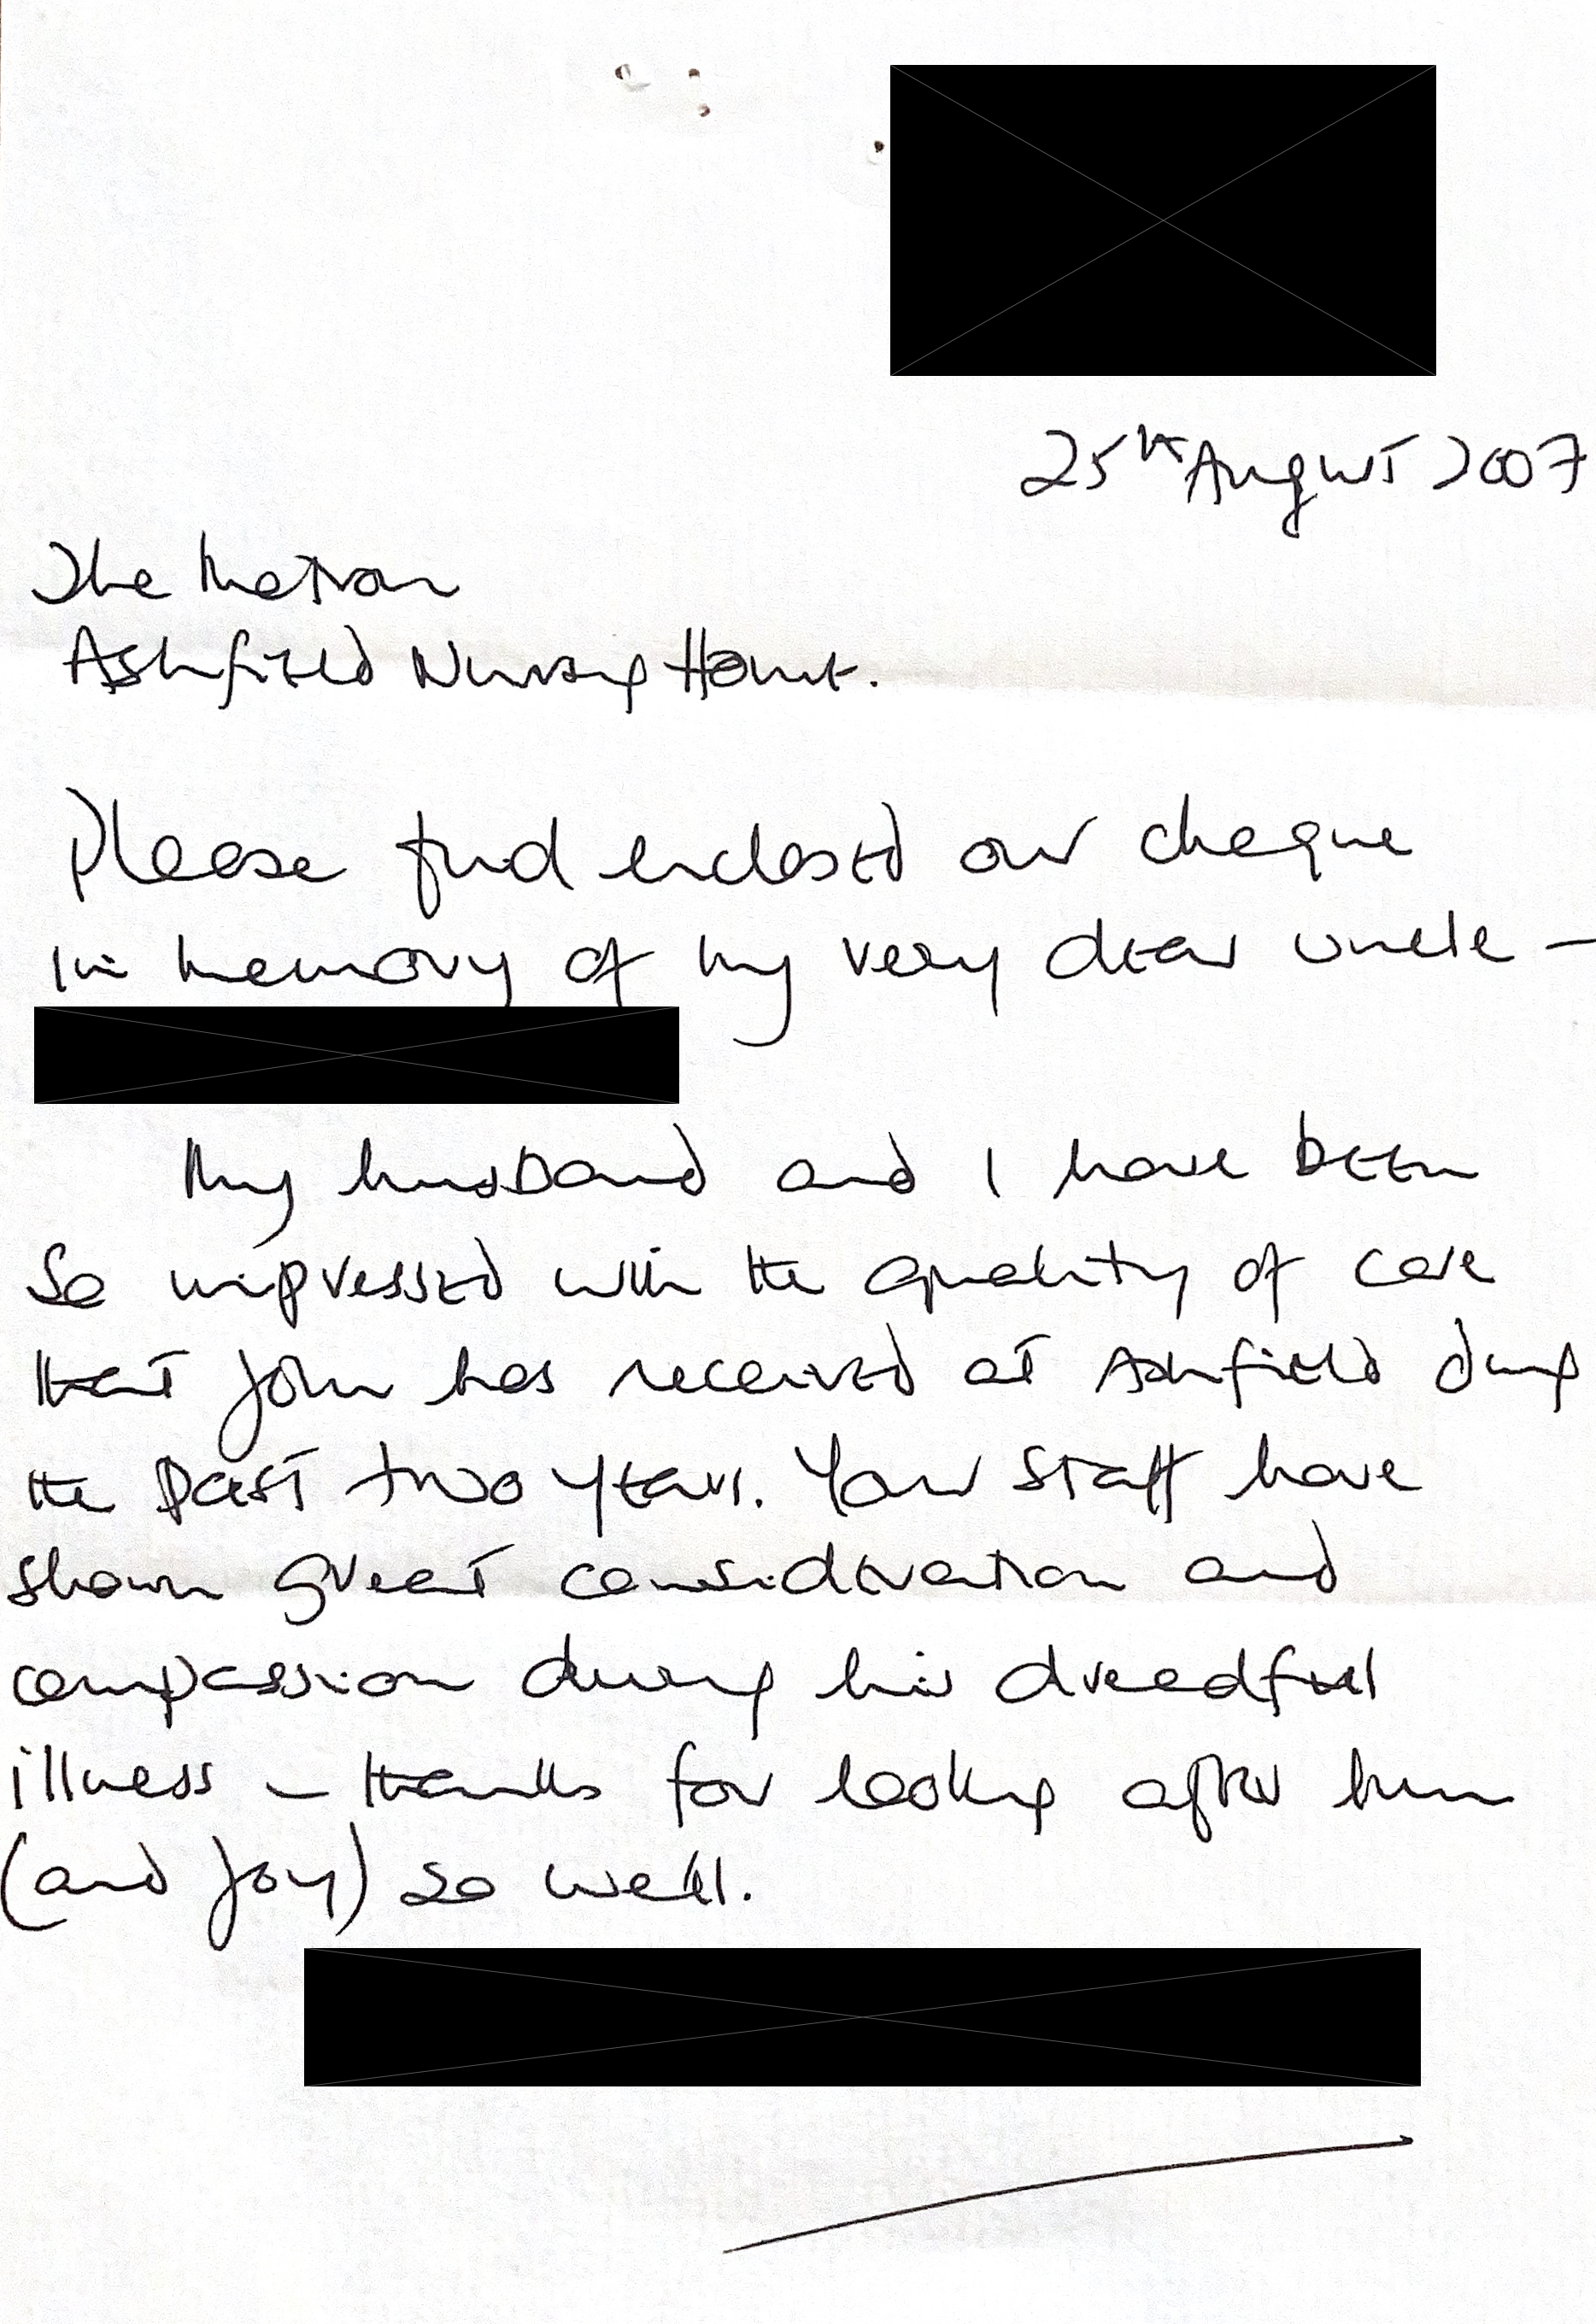 25th August 2007
The Matron
Ashfield Nursing Home.
Please find enclosed our cheque
in memory of my very dear uncle –
My husband and I have been
so impressed with the quality of care
that John has received at Ashfield during
the past two years. Your staff have
shown great consideration and
compassion during his dreadful
illness – thanks for looking after him
(and Joy) so well.